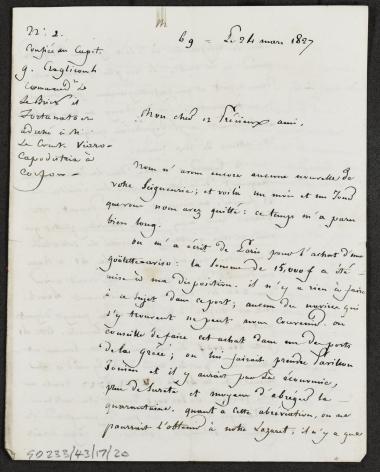 N.° 2.
69 = Le 24 mars 1827
Confiée au Capit.
g.
Command.t le
Le Brick il
Fortunato
à M.
Le Comte Viaro
Capodistria à
Corfou
Mon cher et Précieux ami,
Nous n'avons encore aucune nouvelle de
votre Seigneurie; et voilà un mois et un Jour
que vous nous avez quitté: ce temps m'a paru
bien long.
On m'a écrit de Paris pour l'achat d'une
goëlette-aviso: la somme de 15,000 f a été
mise à ma disposition. il n'y a rien à faire
à ce sujet dans ce port; aucun des navires qui
s'y trouvent ne peut nous convenir. on
conseille de faire cet achat dans un des ports
de la Grèce; on lui ferait prendre Pavillon
Ionien et il y aurait par là économie,
plus de sureté et moyen d'abréger la
quarantaine. quant à cette abréviation, on ne
pourrait l'obtenir à notre Lazaret; il n'y a que
GD233/43/17/20